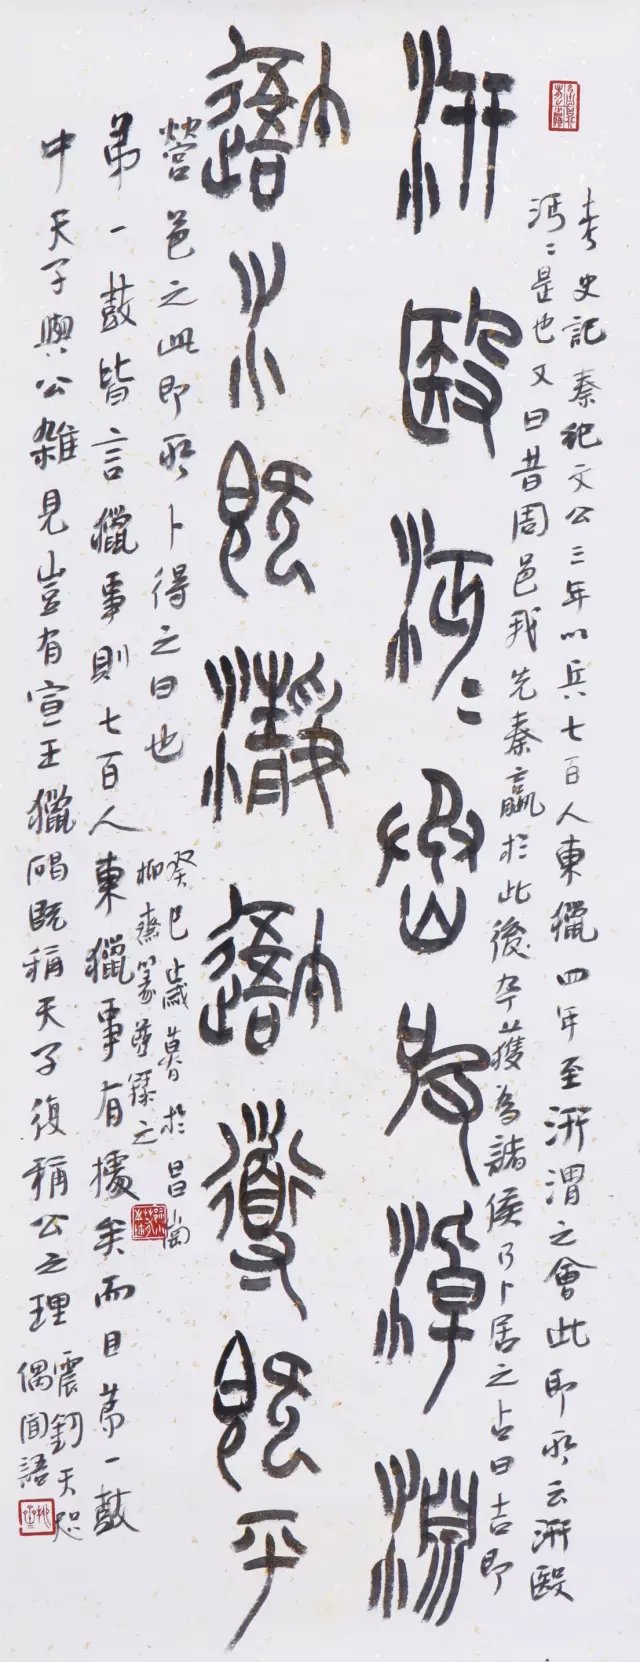 汧殹沔〻丞皮淖淵
水既瀞道既平
考史記秦紀文公三年以兵七百人東獵四年至汧渭之會此即所云汧殹
沔〻是也又曰昔周邑我先秦嬴於此後卒獲為諸侯乃卜居之占曰吉即
營邑之此即所卜得之日也
第一鼓皆言獵事則七百人東獵事有據矣而且第一鼓
中天子與公雜見豈有宣王獵碣既稱天子復稱公之理
震鈞天咫
偶聞語
癸巳歲暮於昌崗
柳齋篆並錄之